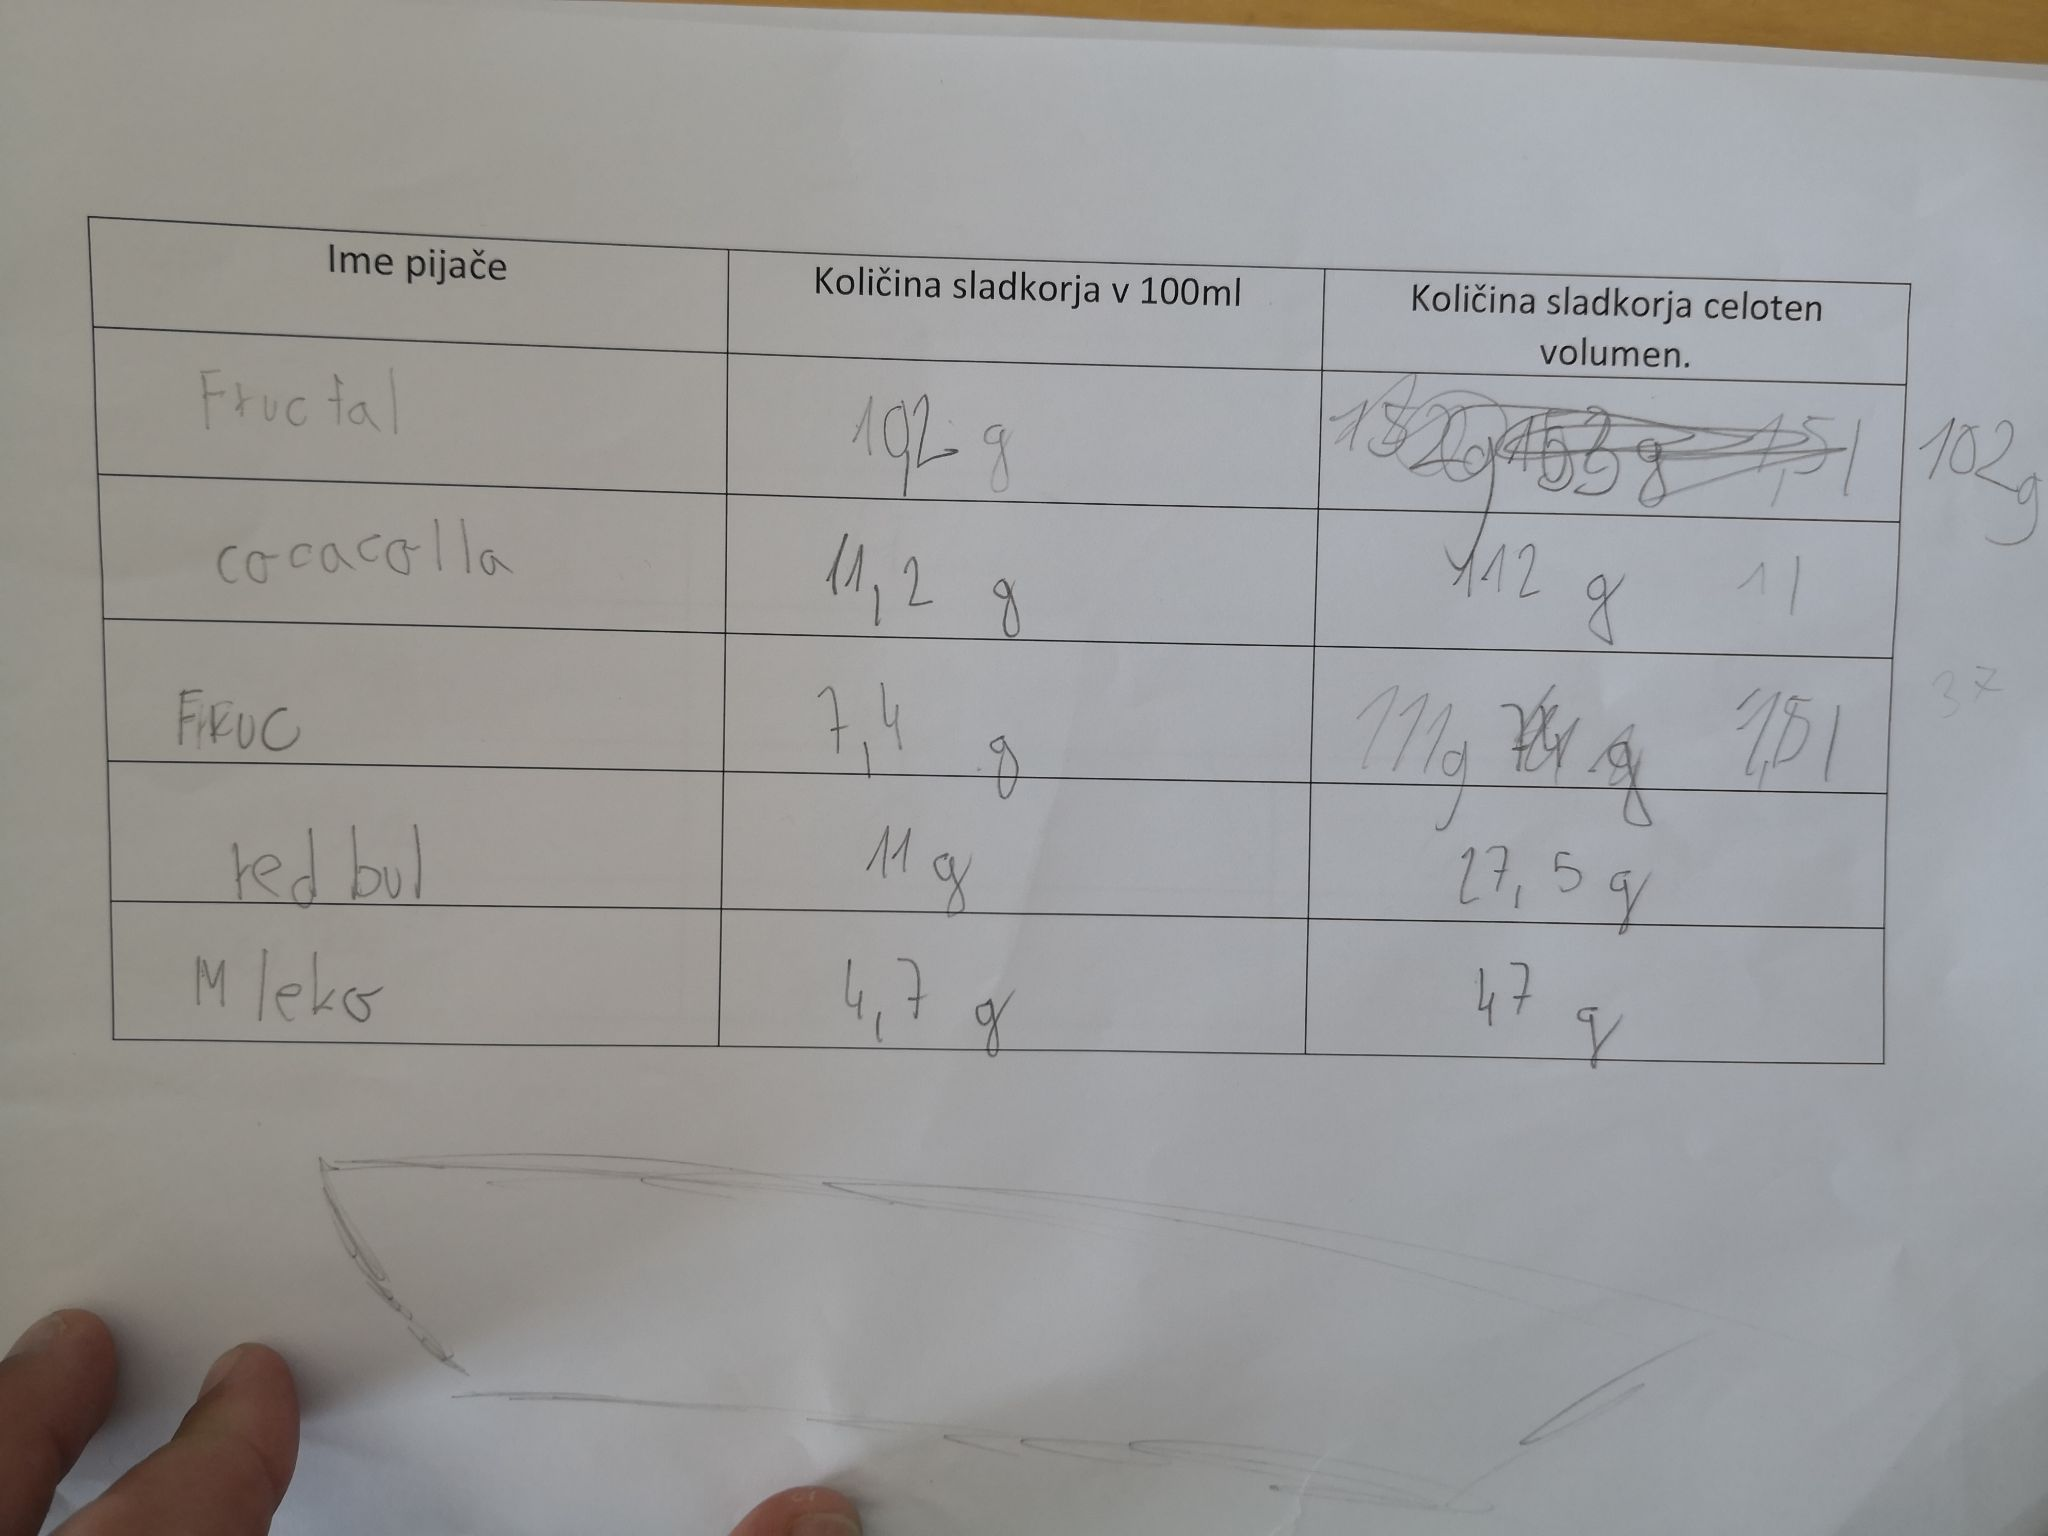 Ime pijače Količina sladkorja v 100ml Količina sladkorja celoten
volumen.
Fructal 10,2 g 1,5l 102g
cocacolla 11,2 g 112 g 1l
FRUC 7,4 g 111g 1,5l 37
red bul 11 g 27,5 g
Mleko 4,7 g 47 g